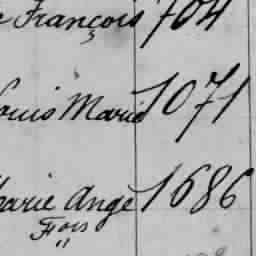 François 704
Louis Marie 1071
Marie Ange 1686
Fois